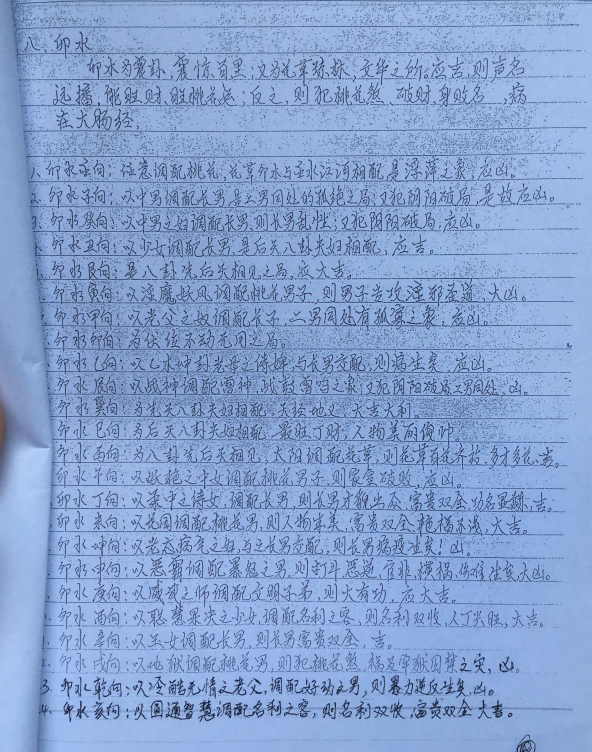 八、卯水
卯水为震卦，震惊百里；又为花草疏林，文华之所。应吉，则声名
远播，能旺财，胜桃花运；反之，则犯桃花煞、破财、身败名，病
在大肠经，
卯水壬向：任意调配桃花，花草卯水与壬水江河相配，是浮萍之象，应凶。
卯水子向：以中男调配长男，是二男同处的孤绝之局；又犯阴阳破局，是故应凶。
卯水癸向：以中男之妇调配长男，则长男乱性；又犯阴阳破局，应凶。
卯水丑向：以少女调配长男，是后天八卦夫妇相配，应吉。
卯水艮向：是八卦先后天相见之局，应大吉。
卯水寅向：以淫魔妖风调配桃花男子，则男子岂攻淫邪歪道，大凶。
卯水甲向：以老父之奴调配长子，二男同处有孤寡之象，应凶。
卯水卯向：为伏位不动无用之局。
卯水乙向：以乙水冲卦老母之侍婢，与长男交配，则病生癸，应凶。
卯水辰向：以战神调配雷神，战鼓雷鸣之象；又犯阴阳破局二男同处，凶。
卯水巽向：为先天八卦夫妇相配，天经地义，大吉大利。
卯水巳向：为后天八卦夫妇相配，最旺丁财，人物美丽俊帅。
卯水丙向：为八卦先后天相见，太阳调配花草，则花草百花齐放，多才多艺，吉。
卯水午向：以妖艳之中女调配桃花男子，则家室破败，应凶。
卯水丁向：以柔中之侍女，调配长男，则长男才貌出众，富贵双全，功名显赫，吉。
卯水未向：以花园调配桃花男，则人物味美，富贵双全，艳福不浅，大吉。
卯水坤向：以老态病充之妇，与之长男交配，则长男病疫生癸！凶。
卯水申向：以恶霸调配暴怒之男，则打斗恶逆，官非、横祸、伤难生癸，大凶。
卯水庚向：以威武之师调配文明子弟，则大有功，应大吉。
卯水酉向：以聪慧果决之少女，调配名利之客，则名利双收，人丁兴旺，大吉。
卯水辛向：以玉女调配长男，则长男富贵双全，吉。
卯水戌向：以地狱调配桃花男，则犯桃花煞，橘逗牢狱囚禁之灾，凶。
3、卯水乾向：以冷酷无情之老父，调配好动之男，则暴力逆反生癸，凶。
4、卯水亥向：以圆通智慧调配名利之客，则名利双收，富贵双全，大吉。